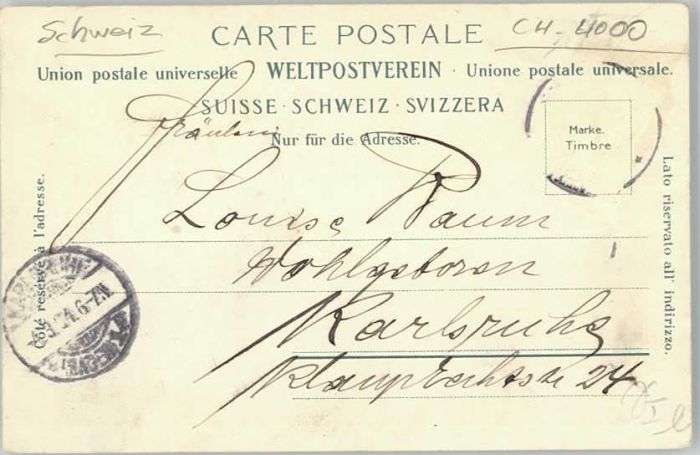 Schweiz
CARTE POSTALE
CH-4000
Union postale universelle · WELTPOSTVEREIN · Unione postale universale.
SUISSE · SCHWEIZ · SVIZZERA
Fräulein
Nur für die Adresse.
Marke.
Timbre
Louise Raum
Wohlgeboren
Karlsruhe
24
Côté réservé à l'adresse.
Lato riservato all' indirizzo.